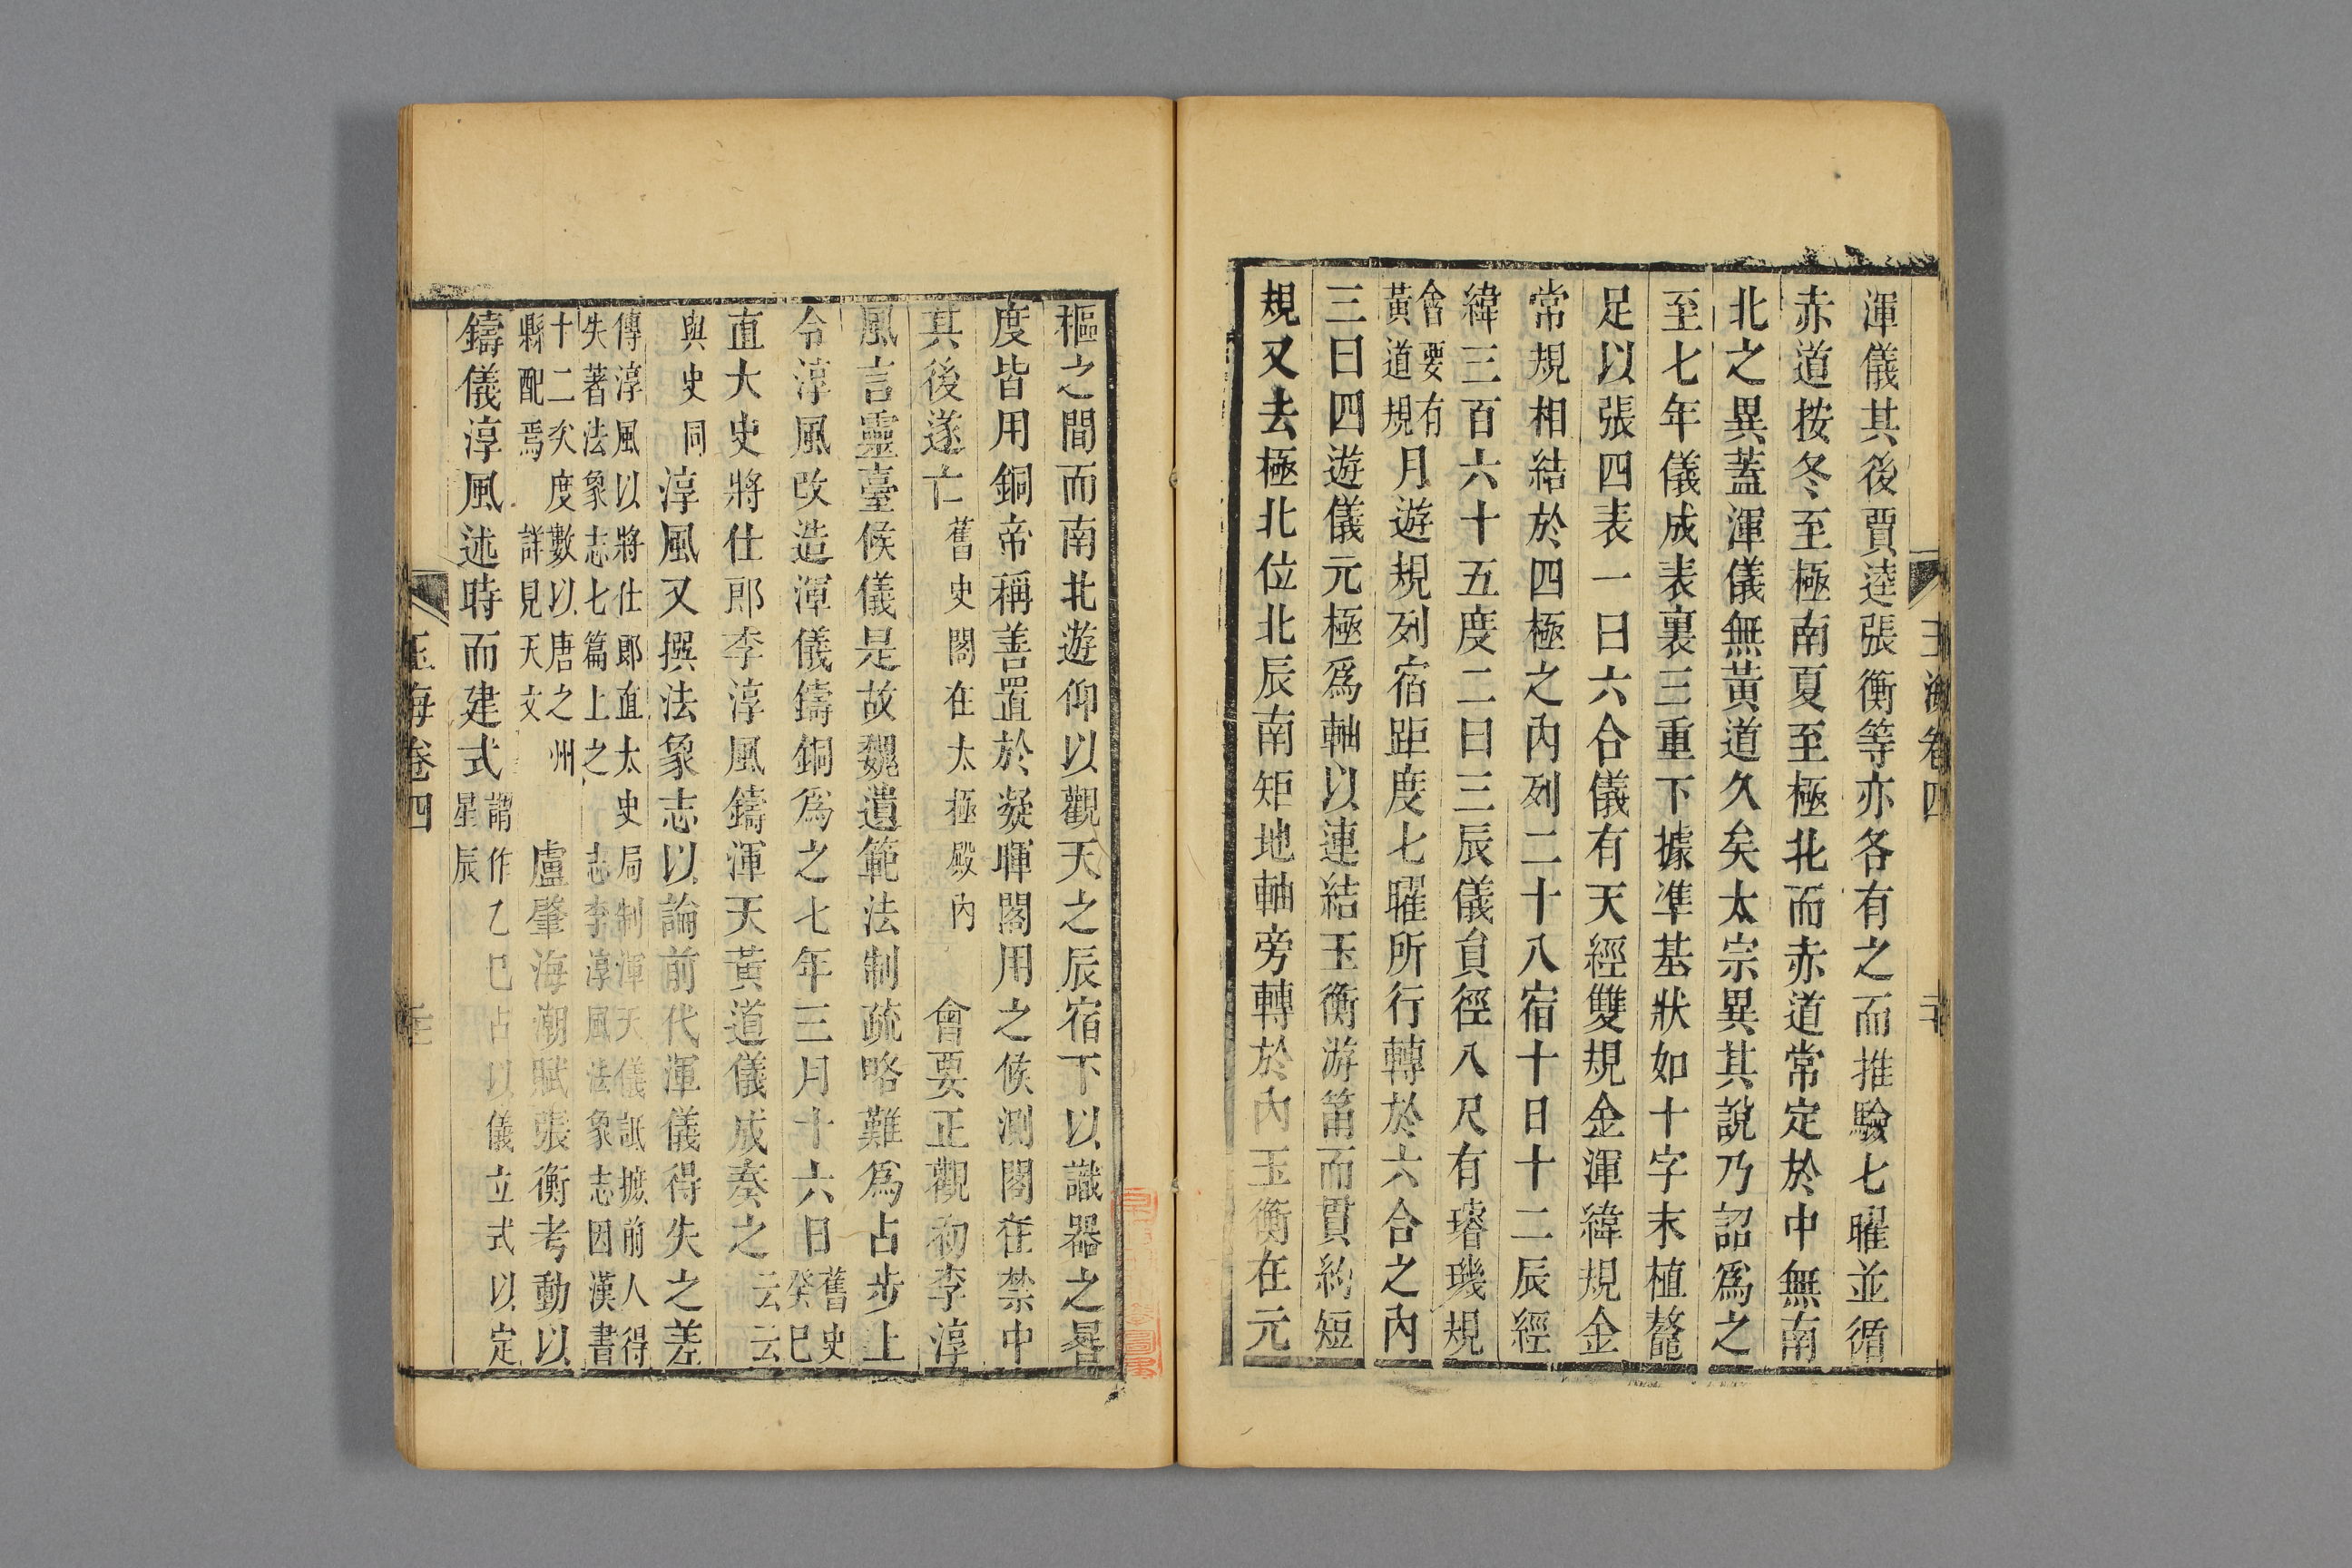 玉海卷四
渾儀其後賈逵張衡等亦各有之而推驗七曜並循
赤道按冬至極南夏至極北而赤道常定於中無南
北之異蓋渾儀無黃道久矣太宗異其說乃詔爲之
至七年儀成表裏三重下據準基狀如十字末植鼇
足以張四表一曰六合儀有天經雙規金渾緯規金
常規相結於四極之內列二十八宿十日十二辰經
緯三百六十五度二曰三辰儀貟徑八尺有璿璣規
會要有
黃道規
月遊規列宿距度七曜所行轉於六合之內
三曰四遊儀元極爲軸以連結玉衡游筩而貫約短
規又去極北位北辰南矩地軸旁轉於內玉衡在元
樞之間而南北遊仰以觀天之辰宿下以識器之晷
度皆用銅帝稱善置於凝暉閣用之候測閣在禁中
其後遂亡
舊史閣在太極殿內
會要正觀初李淳
風言靈臺候儀是故魏遺範法制疏略難爲占步上
令淳風改造渾儀鑄銅爲之七年三月十六日
舊史
癸巳
直大史將仕郎李淳風鑄渾天黃道儀成奏之
云云
與史同
淳風又撰法象志以論前代渾儀得失之差
傳淳風以將仕郎直太史局制渾天儀詆摭前人得
失著法象志七篇上之
志李淳風法象志因漢書
十二次度數以唐之州
縣配焉
詳見天文
盧肇海潮賦張衡考動以
鑄儀淳風述時而建式
謂作乙巳占以儀立式以定
星辰
玉海卷四